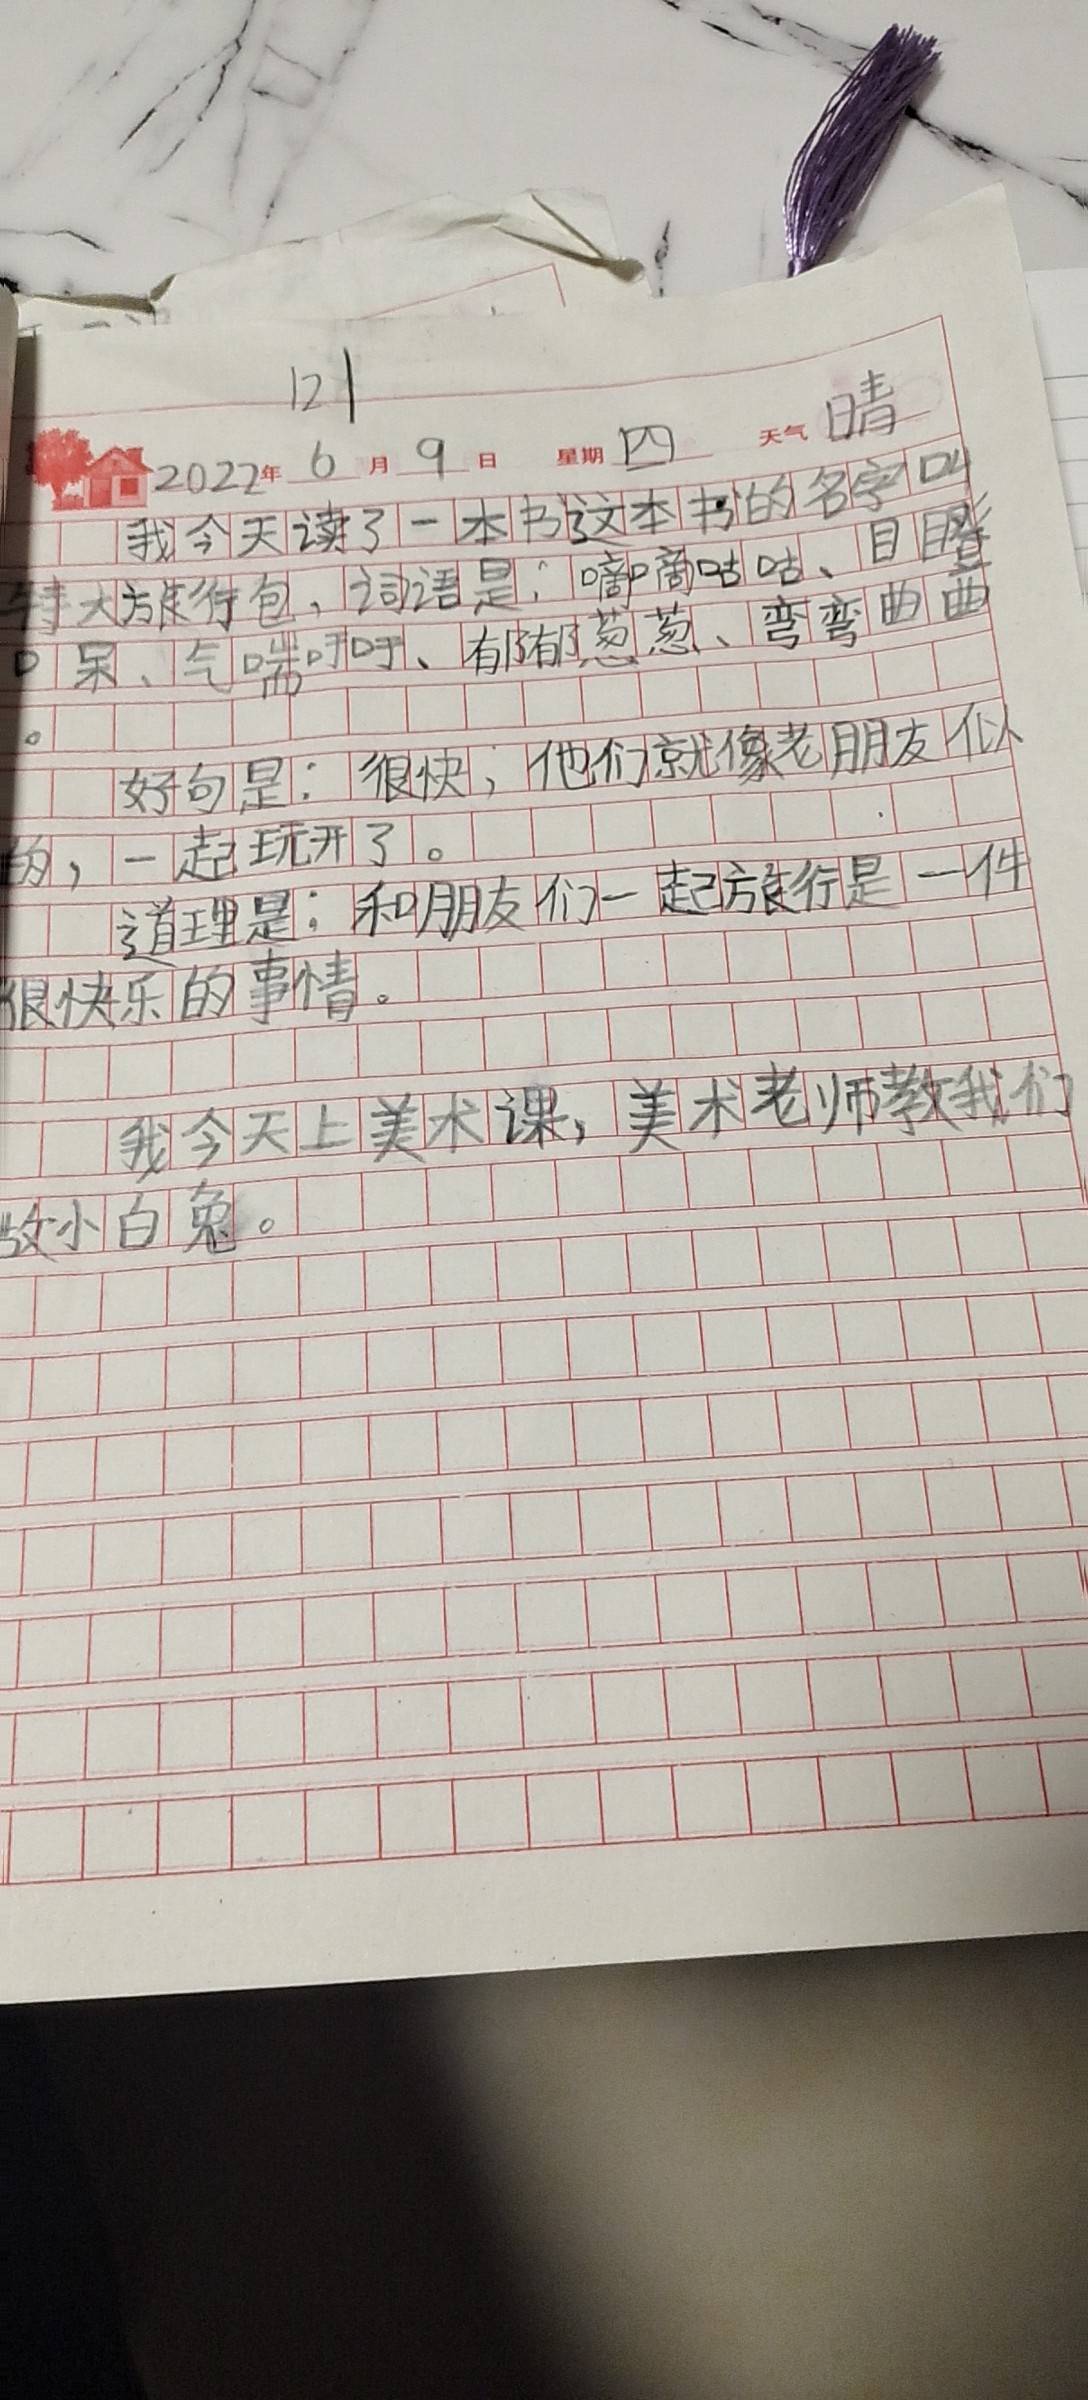 121
2022年 6 月 9 日 星期 四 天气 晴
我今天读了一本书这本书的名字叫
特大旅行包,词语是:嘀嘀咕咕、目瞪
口呆、气喘吁吁、郁郁葱葱、弯弯曲曲
。
好句是:很快,他们就像老朋友似
的,一起玩开了。
道理是:和朋友们一起旅行是一件
很快乐的事情。
我今天上美术课,美术老师教我们
做小白兔。